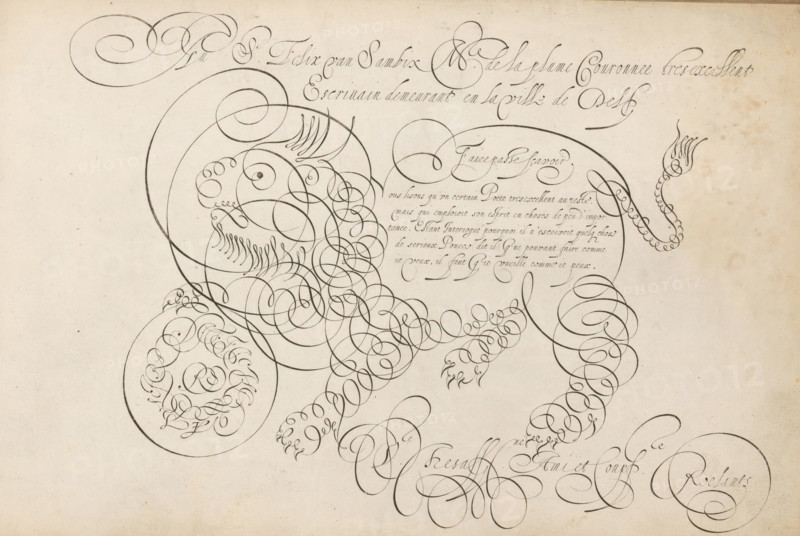 Au Sr. Felix van Sambix Me. de la plume Couronnee tresexcellent
Escrivain demeurant en la ville de Delft
Face passe scavoir.
ous lisons qu'vn certain Poete tresexcellent au reste,
mais qui emploioit son esprit en choses de peu d'impor-
tance. Estant Interrogué pourquoi il n'escrivoit quelq chose
de serieux Pource dit il Que pouvant faire comme
ie veux, il faut Que vueille comme ie peux.
Ami et
Roelants